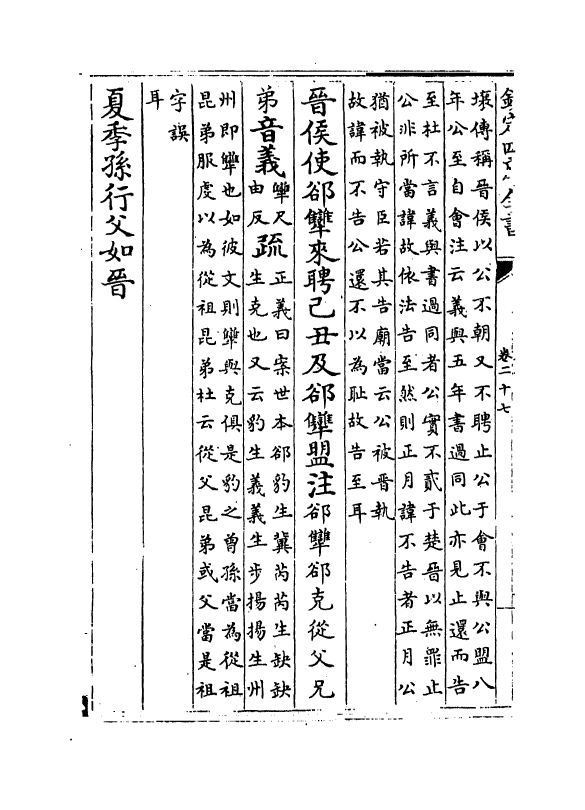 欽定四庫全書
卷二十七
壤傳稱晉侯以公不朝又不聘止公于會不與公盟八
年公至自會注云義與五年書過同此亦見止還而告
至杜不言義與書過同者公實不貳于楚晉以無罪止
公非所當諱故依法告至然則正月諱不告者正月公
猶被執守臣若其告廟當云公被晉執
故諱而不告公還不以為耻故告至耳
晉侯使郤犨來聘己丑及郤犨盟注郤犨郤克從父兄
弟音義犨尺
由反疏正義曰案世本郤豹生冀芮芮生缺缺
生克也又云豹生義義生步揚揚生州
州即犨也如彼文則犨與克俱是豹之曽孫當為從祖
昆弟服虔以為從祖昆弟杜云從父昆弟或父當是祖
字誤
耳
夏季孫行父如晉